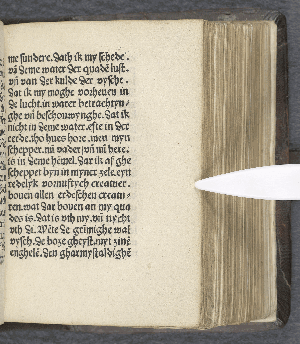 me sundere. Dath ik my schede.
vñ deme water der quadē lust.
vñ van der kulde der vysche.
Dat ik my moghe vorheuen in
de lucht. in water betrachtyn-
ghe vñ beschouwynghe. Dat ik
nicht in deme water. efte in der
eerde. tho hues hore. men myn
schepper. mī vader vñ mī here.
is in deme hēmel. Dar ik af ghe
scheppet byn in myner zele. eyn
redelyk vornuftych creatuer.
bouen allen erdeschen creatu-
ren. wat dar bouen an my qua
des is. Dat is vth my. vñ nycht
vth di. Wēte de grīnighe wal
vysch. de boze gheyst. myt zinē
enghelē. den gharmystaldighē